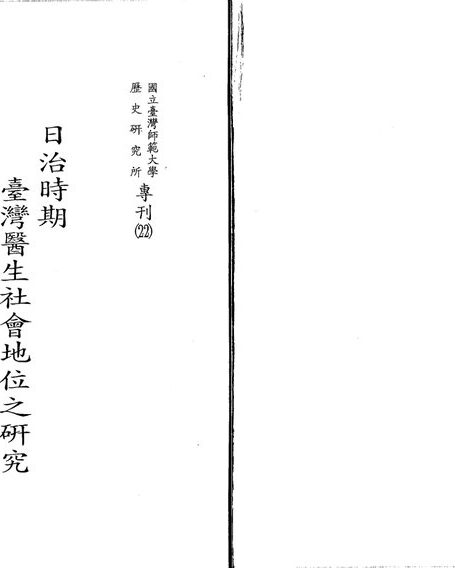 國立臺灣師範大學
歷史研究所
專刊(22)
日治時期
臺灣醫生社會地位之研究